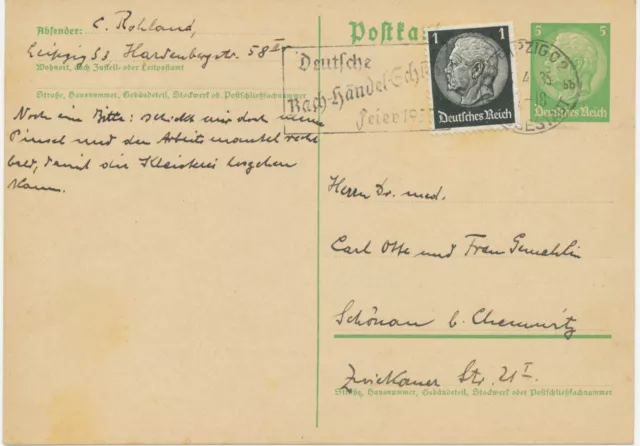 Absender: C. Rohland,
Leipzig S3 Hardenbergstr. 58
Wohnort, auch Zustell- oder Leitpostamt
Straße, Hausnummer, Gebäudeteil, Stockwerk od. Postschließfachnummer
Postkart
Deutsche
Bach-Händel-Sch
Feier 193
1
Deutsches Reich
5 5
Deutsches Reich
Noch eine Bitte: schickt mir doch meine
Pinsel und den Arbeitsmantel recht
bald, damit die Kleisterei losgehen
kann.
Herrn Dr. med.
Carl Otte und Frau Gemahlin
Schönau b. Chemnitz
Zwickauer Str. 21 I
Straße, Hausnummer, Gebäudeteil, Stockwerk oder Postschließfachnummer